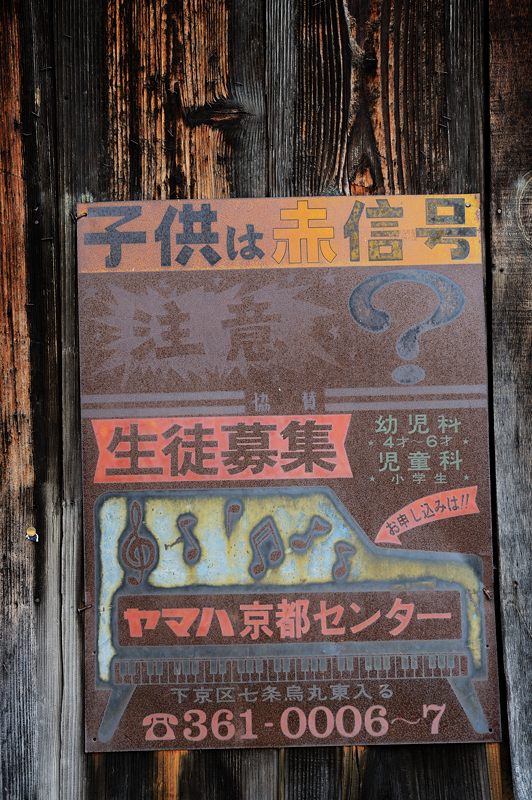 子供は赤信号
注意?
協賛
生徒募集
幼児科
★4才~6才★
児童科
★小学生★
お申し込みは!!
ヤマハ京都センター
下京区七条烏丸東入る
☎361-0006~7